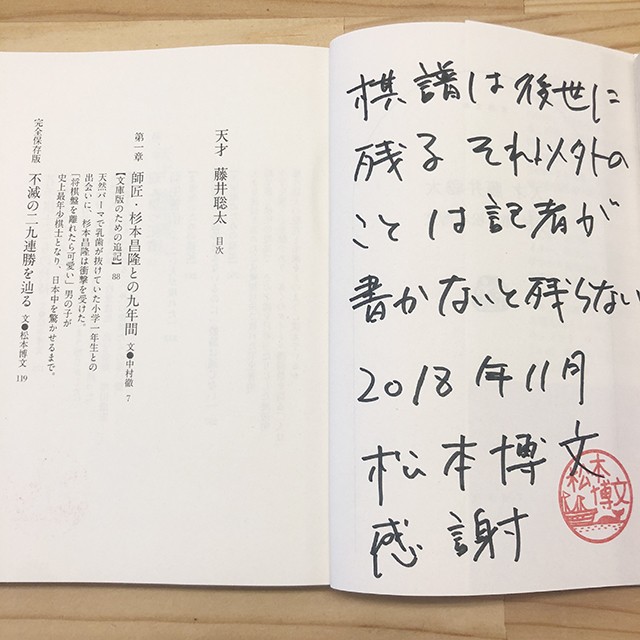 棋譜は後世に
残る それ以外の
ことは記者が
書かないと残らない
2018年11月
松本博文
感謝
松本
博文
天才 藤井聡太 目次
第一章 師匠・杉本昌隆との九年間 文●中村徹 7
【文庫版のための追記】 88
天然パーマで乳歯が抜けていた小学一年生との
出会いに、杉本昌隆は衝撃を受けた。
「将棋盤を離れたら可愛い」男の子が
史上最年少棋士となり、日本中を驚かせるまで。
完全保存版 不滅の二九連勝を辿る 文●松本博文 119